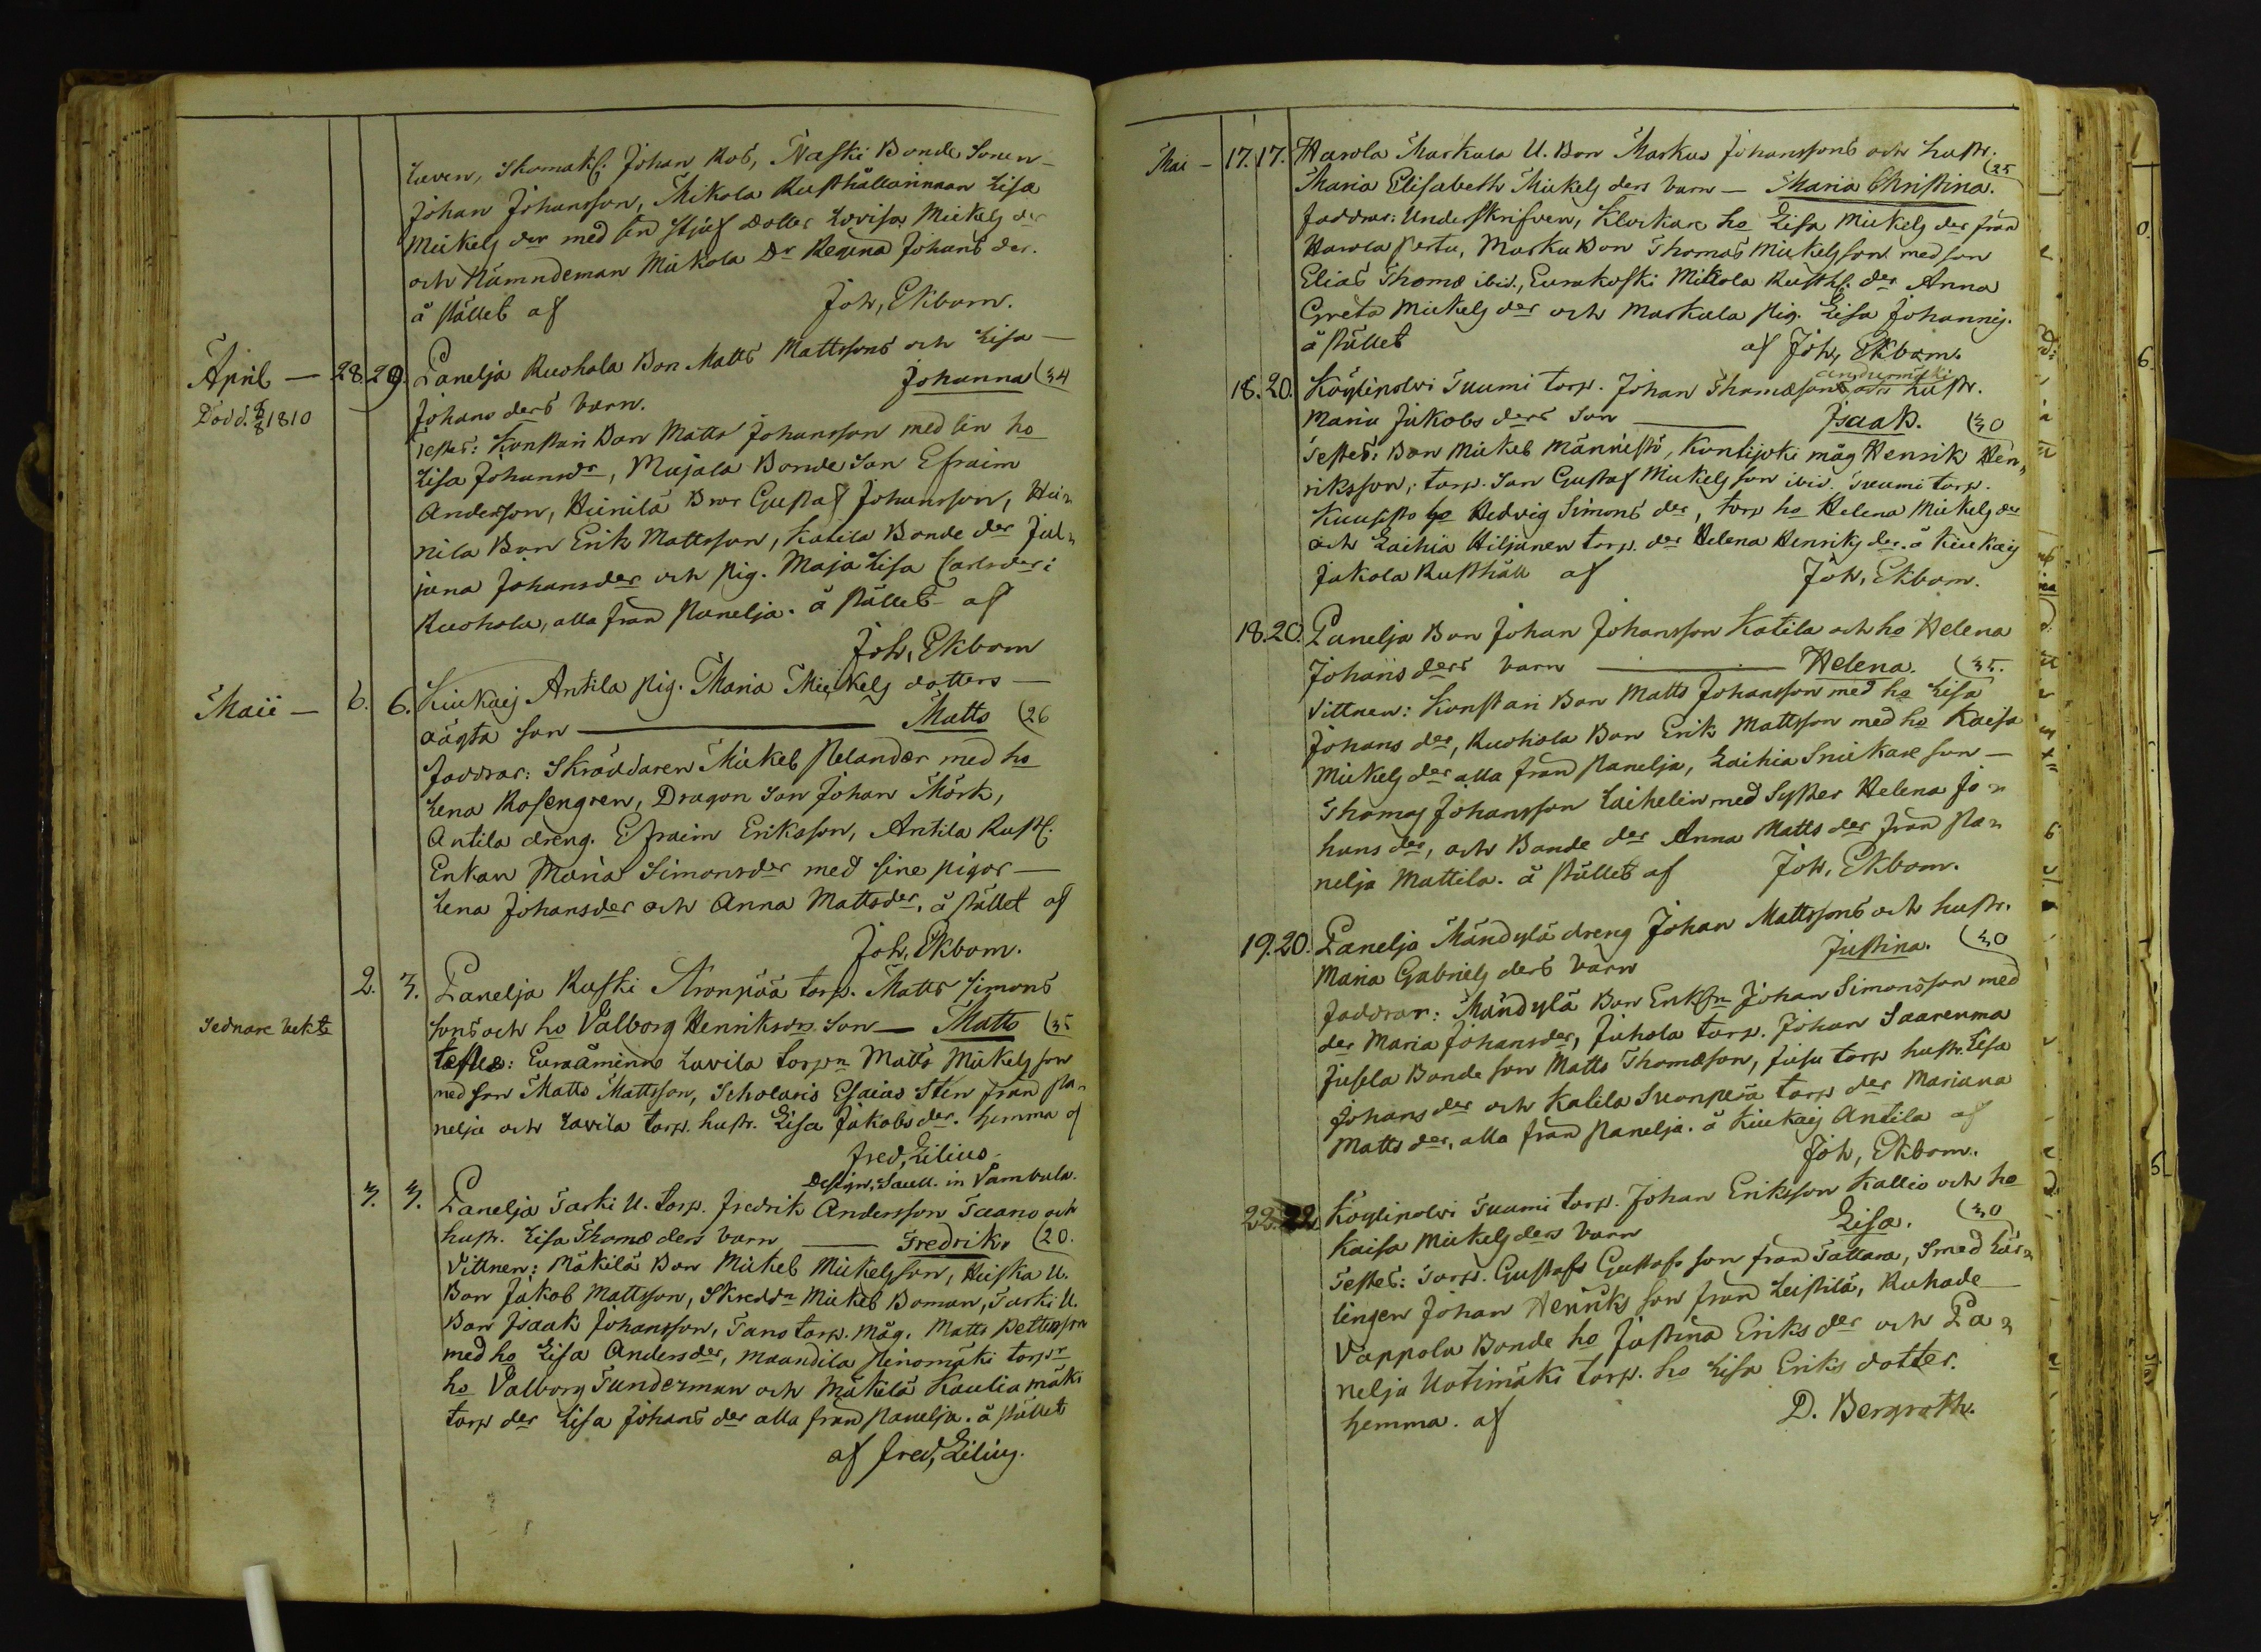 Johan Ros, Naski Bonde Sonen
Johan Johansson, Mikola Rusthållarinnan Lisa
Mickels der med sin stjuf dotter Lovisa Mickels der
och Nämndeman Mikola Dr Regina Johans der.
å stället af Joh, Ekbom.
April — 28. 29. Panelja Ruohola Bon Matts Mattssons och Lisa —
Död d. 1810
Johans ders barn. Johanna (34
Testes: Konstari Bon Matts Johansson med sin ho
Lisa Johansdr, Mujala Bonde Son Efraim
Andersson, Heinilä Bror Gustaf Johansson, Hei=
nila Bon Erik Mattsson, Katila Bonde der Jul=
iana Johansder och pig. Maja Lisa Carlsder i
Ruohola, alla från Panelja. å stället af
Joh, Ekbom
Maii — 6. 6. Kiukais Antila pig. Maria Mickels dotters —
oägta son — Matts (26
Faddrar: Skräddaren Mickel Pelander med ho
Lena Rosengren, Dragon Son Johan Mörk,
Antila dreng. Efraim Eriksson, Antila Rustl.
Enkan Maria Simonsder med sine pigor —
Lena Johansder och Anna Mattsder, å stället af
Joh, Ekbom.
2. 3. Panelja Ruski Aronpää torp. Matts Simons
Sednare vekte
sons och ho Valborg Henriksdrs Son — Matts (35
testes: Euraåminne Lavila torpn Matts Mickelsson
med son Matts Mattsson, Scholaris Esaias Sten från Pa=
nelja och Lavila torp. hustr. Lisa Jakobsder. hemma af
Fred, Lilius.
Design. Sacell. in Vambula.
3. 3. Panelja Tarki U. torp. Fredrik Andersson Taano och
hustr. Lisa Thomæ ders barn — Fredrik. (20.
Vittnen: Mäkilä Bon Mickel Mickelsson, Heiska U.
Bon Jakob Mattsson, Skreddn Mickel Boman, Tarki U.
Bon Isaak Johansson, Tano torp. måg. Matts Pettersson
med ho Lisa Andersder, Maandila Heinomäki torpr
ho Valborg Tunderman och Mäkilä Kaulia mäki
torp der Lisa Johans der alla från Panelja. å stället
af Fred, Lilius.
Mai — 17. 17. Harola Markula U. Bon Markus Johanssons och hustr.
Maria Elisabeth Mickels ders barn — Maria Christina. (25
Faddrar: Underskrifven, Klockare ho Lisa Mickels der från
Harola Pertu, Marku Bon Thomas Mickelsson med son
Elias Thomæ ibid., Eurakoski Mikola Rusth. der Anna
Greta Mickels der och Markula pig. Lisa Johannis.
å stället af Joh, Ekbom.
18. 20. Köylipolvi Tuumi torp. Johan Thomæsons och hustr.
Maria Jakobs ders Son — Isaak. (30
Testes: Bon Mickel Männistö, Kontijoki måg Henrik Hen=
riksson, torp. Son Gustaf Mickelsson ibid. Tuumi torp.
Kuusisto ho Hedvig Simons der, torp ho Helena Mickels der
och Laihia Hiljanen torp. der Helena Henriks der. å Kiukais
Jakola Rusthåll af Joh, Ekbom.
18. 20. Panelja Bon Johan Johansson Katila och ho Helena
Johans ders barn — Helena. (35.
Vittnen: Konstari Bon Matts Johansson med ho Lisa
Johans der, Ruohola Bon Erik Mattsson med ho Kaisa
Mickels der alla från Panelja, Laihia Snickare son —
Thomas Johansson Laihelin med Syster Helena Jo=
hans der, och Bonde der Anna Matts der från Pa=
nelja Mattila. å stället af Joh, Ekbom.
19. 20. Panelja Mändylä dreng Johan Mattssons och hustr.
Maria Gabriels ders barn Justina. (30
Faddrar: Mändylä Bon Johan Simonsson med
der Maria Johansder, Juhola torp. Johan Saarenma
Jusela Bonde son Matts Thomæson, Jusu torp hustr. Lisa
Johans der och Katila Suonperä torp der Mariana
Matts der, alla från Panelja. å Kiukais Antila af
Joh, Ekbom.
22. 22. Köylipolvi Tuumi torp. Johan Eriksson Kallio och ho
Kaisa Mickels ders barn Lisa. (30
Testes: Torp. Gustafs Gustafs son från Tattara, Smed Lär=
lingen Johan Henriks son från Leistilä, Ruhade
Vappola Bonde ho Justina Eriks der och Pa=
nelja Uotimäki torp. ho Lisa Eriks dotter.
hemma. af D. Bergroth.